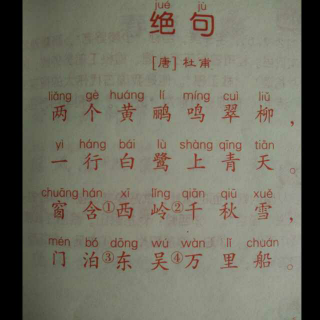 jué jù
绝句
[唐]杜甫
liǎng gè huáng lí míng cuì liǔ
两个黄鹂鸣翠柳，
yì háng bái lù shàng qīng tiān
一行白鹭上青天。
chuāng hán xī lǐng qiān qiū xuě
窗含①西岭②千秋雪，
mén bó dōng wú wàn lǐ chuán
门泊③东吴④万里船。